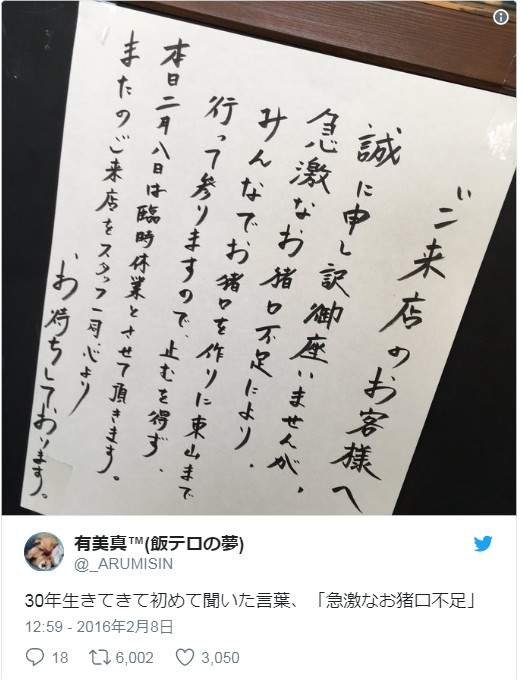 ご来店のお客様へ
誠に申し訳御座いませんが、
急激なお猪口不足により、
みんなでお猪口を作りに東山まで
行って参りますので、止むを得ず、
本日二月八日は臨時休業とさせて頂きます。
またのご来店をスタッフ一同、心より
お待ちしております。
有美真™(飯テロの夢)
@_ARUMISIN
30年生きてきて初めて聞いた言葉、「急激なお猪口不足」
12:59 - 2016年2月8日
18 6,002 3,050